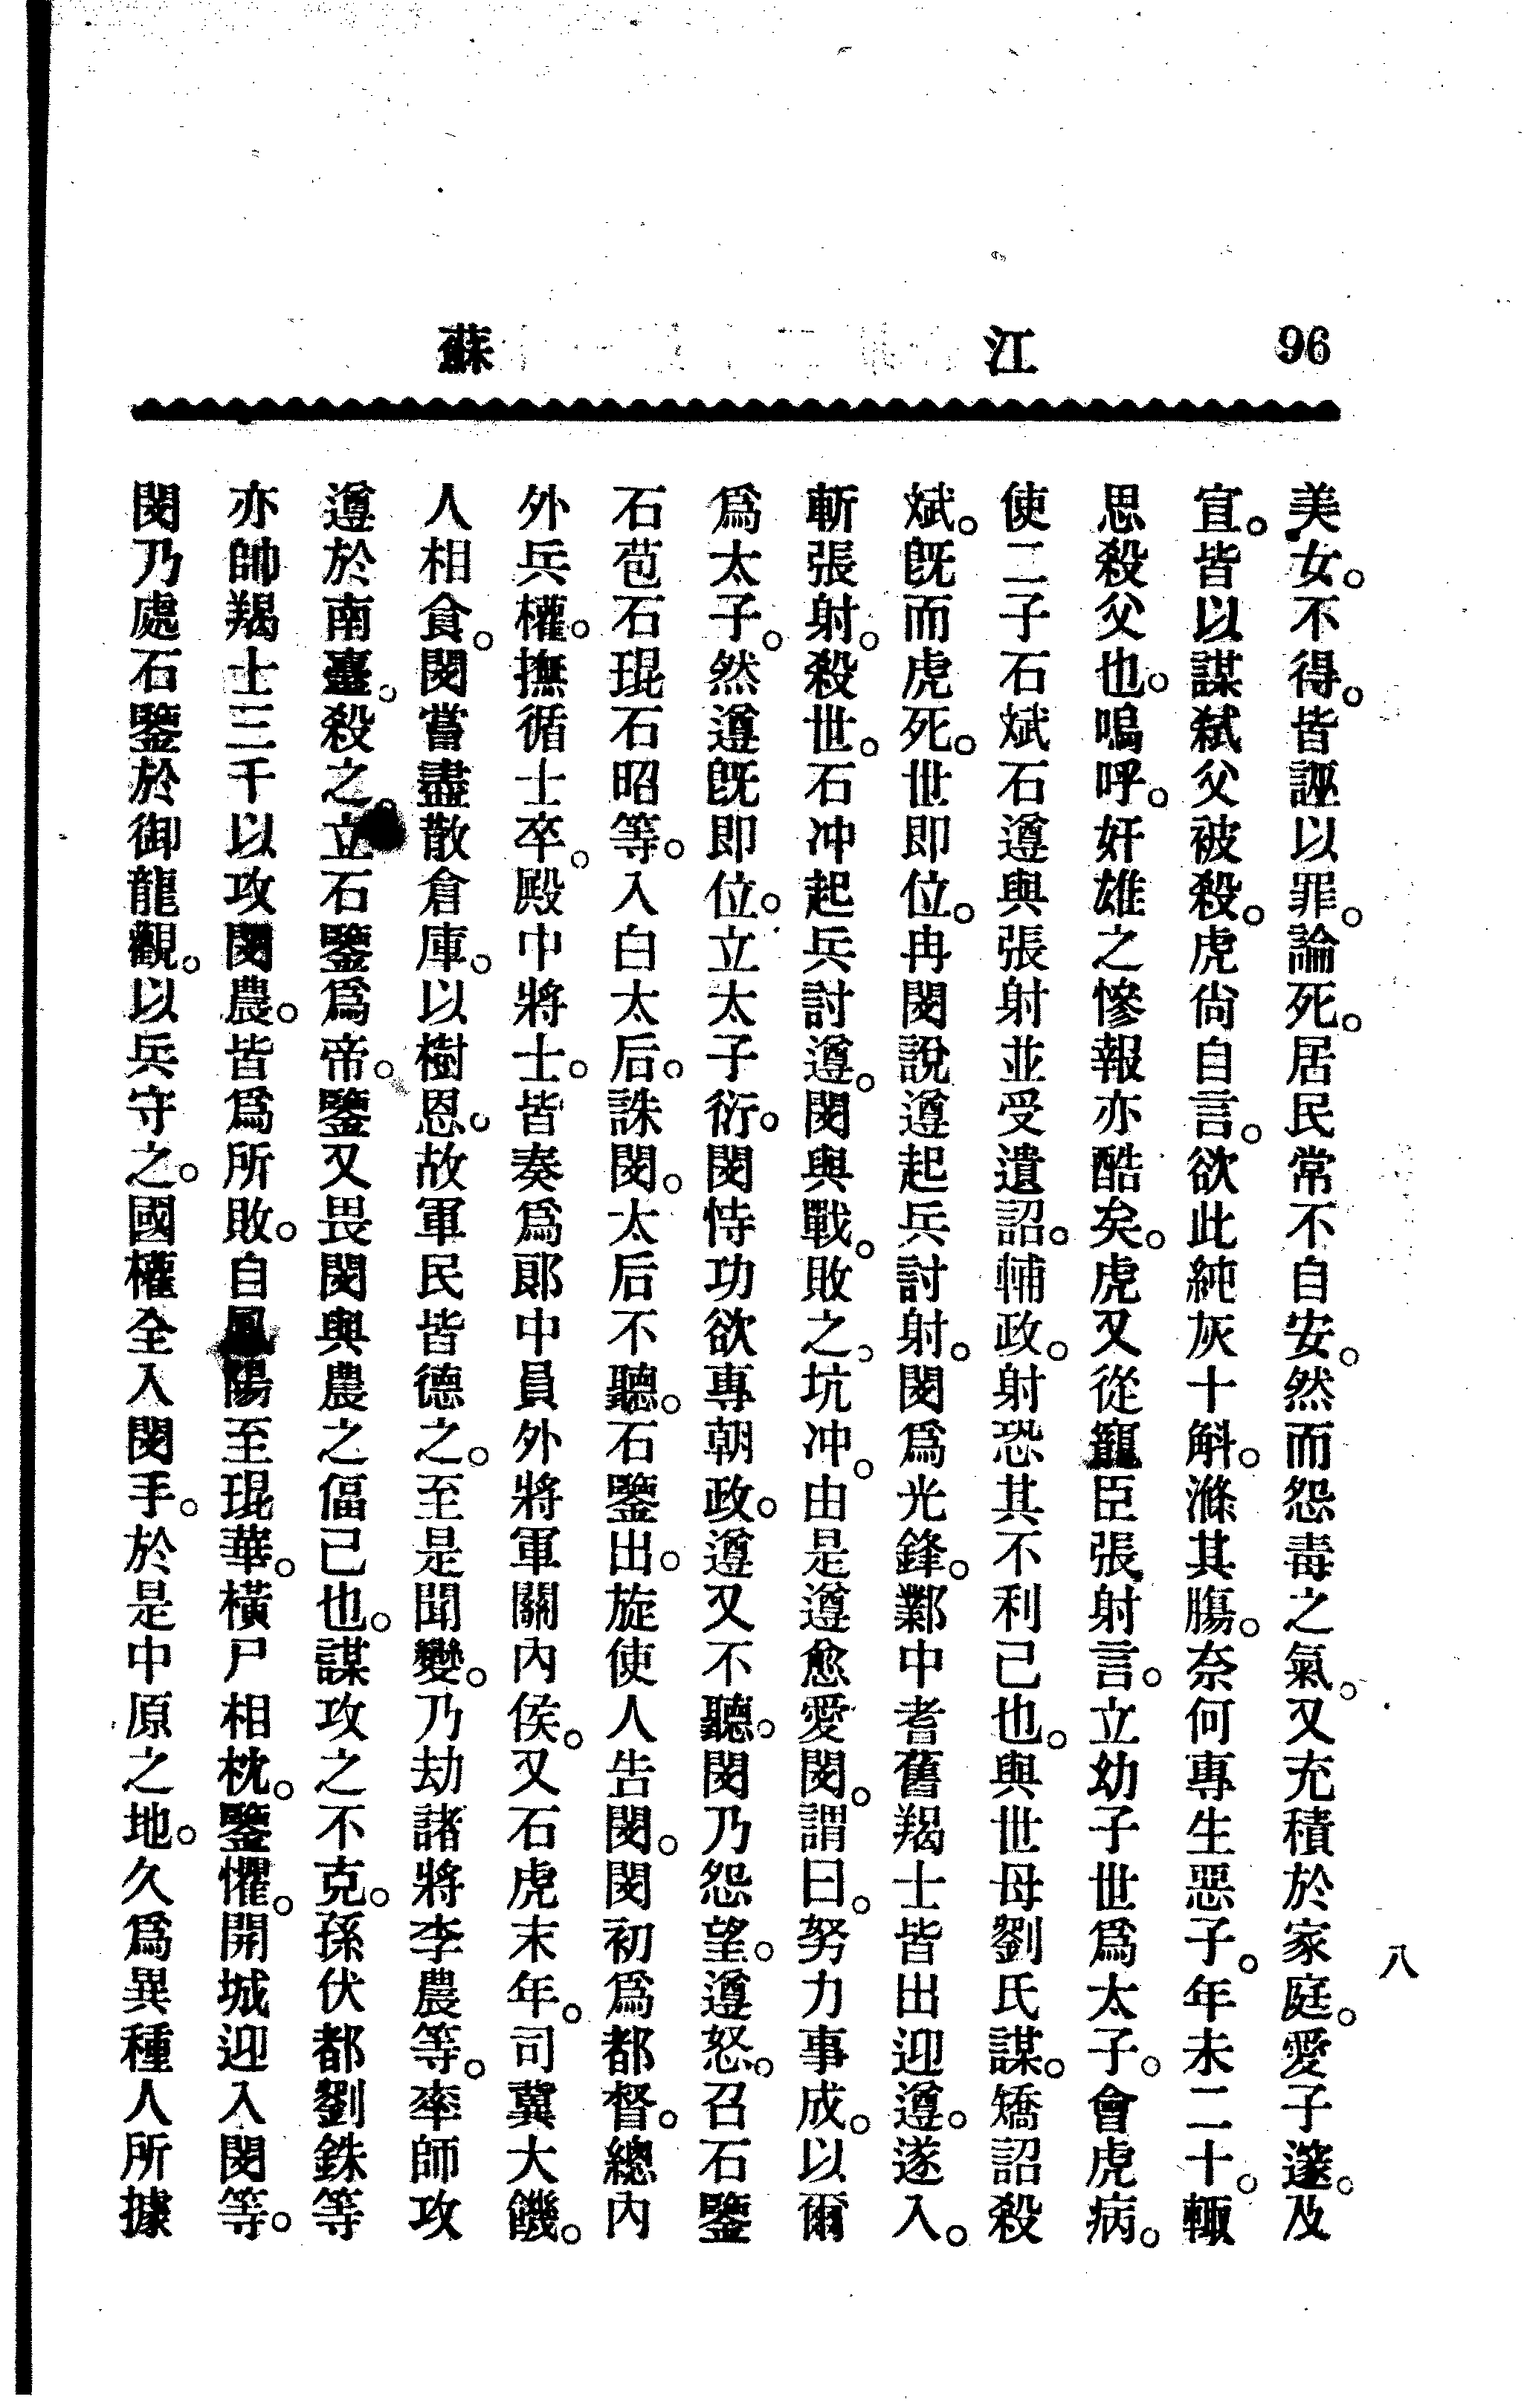 96 江 蘇
八
美女。不得。皆誣以罪。論死。居民常不自安。然而怨毒之氣。又充積於家庭。愛子邃。及
宣。皆以謀弑父被殺。虎尙自言。欲此純灰十斛。滌其膓。奈何專生惡子。年未二十。輙
思殺父也。嗚呼。奸雄之慘報亦酷矣。虎又從寵臣張射言。立幼子世爲太子。會虎病。
使二子石斌石遵與張射並受遺詔。輔政。射恐其不利己也。與世母劉氏謀。矯詔殺
斌。旣而虎死。世即位。冉閔說遵起兵討射。閔爲光鋒。鄴中耆舊羯士皆出迎遵。遂入。
斬張射。殺世。石冲起兵討遵。閔與戰。敗之。坑冲。由是遵愈愛閔。謂曰。努力事成。以爾
爲太子。然遵旣即位。立太子衍。閔恃功欲專朝政。遵又不聽。閔乃怨望。遵怒。召石鑒
石苞石琨石昭等。入白太后。誅閔。太后不聽。石鑒出。旋使人告閔。閔初爲都督。總內
外兵權。撫循士卒。殿中將士。皆奏爲郞中員外將軍關內侯。又石虎末年。司冀大饑。
人相食。閔嘗盡散倉庫。以樹恩。故軍民皆德之。至是聞變。乃劫諸將李農等。率師攻
遵於南臺。殺之。立石鑒爲帝。鑒又畏閔與農之偪己也。謀攻之不克。孫伏都劉銖等
亦帥羯士三千以攻閔農。皆爲所敗。自鳳陽至琨華。橫尸相枕。鑒懼。開城迎入閔等。
閔乃處石鑒於御龍觀。以兵守之。國權全入閔手。於是中原之地。久爲異種人所據